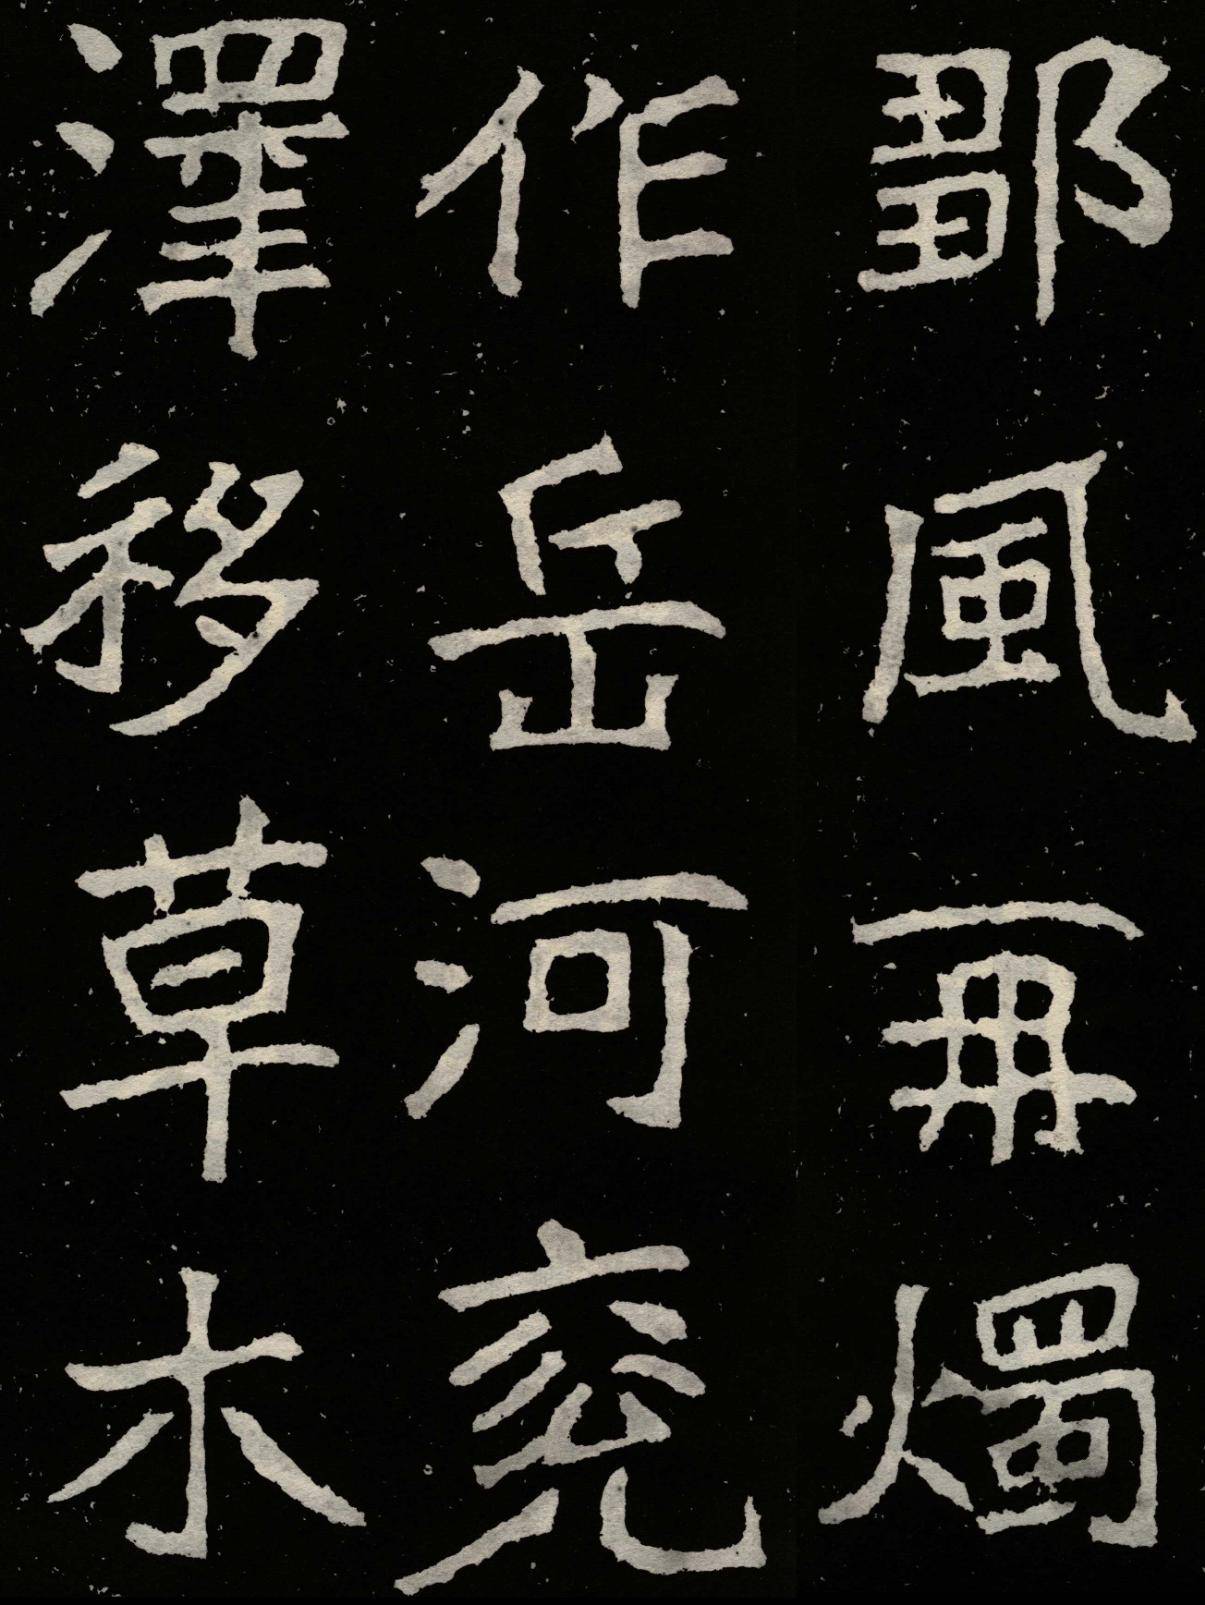 鄒風再燭
作岳河兗
澤移草木